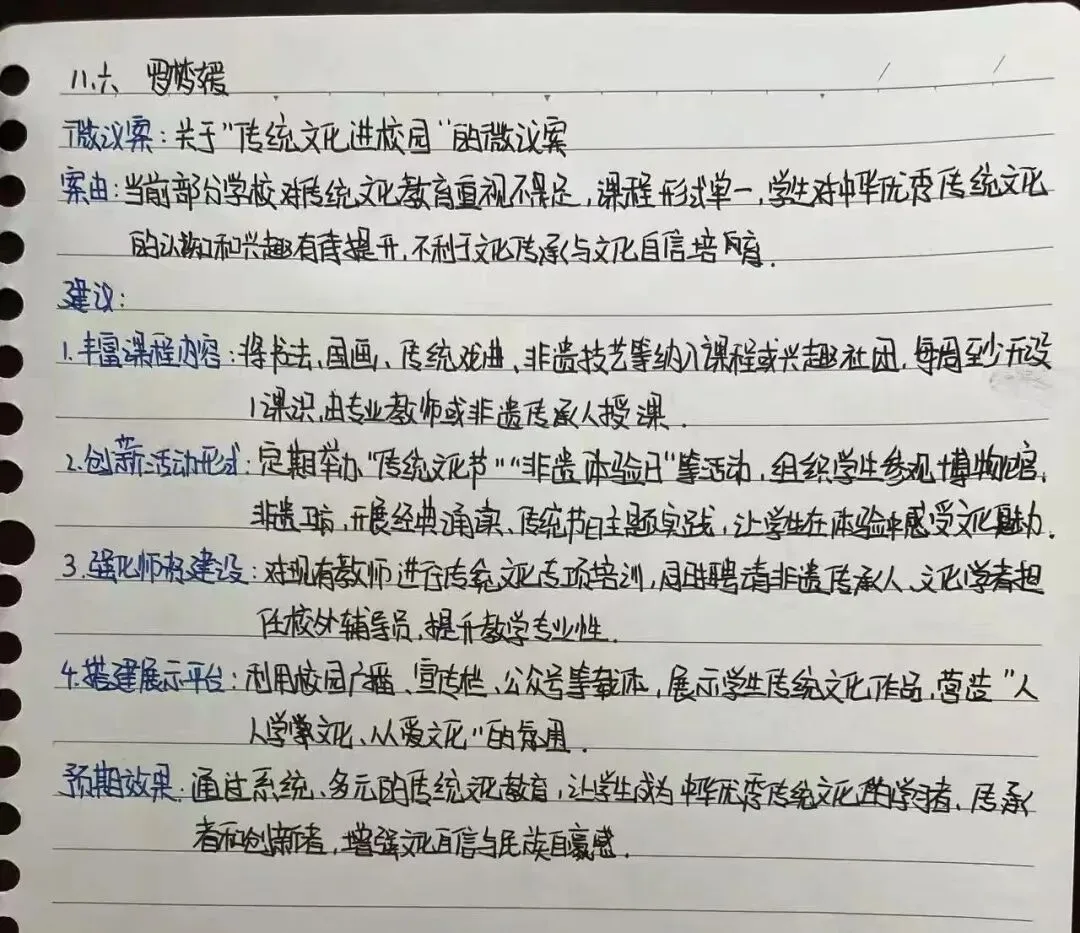 八.六 罗梦媛
微议案:关于"传统文化进校园"的微议案
案由:当前部分学校对传统文化教育重视不足,课程形式单一,学生对中华优秀传统文化
的认知和兴趣有待提升,不利于文化传承与文化自信培育.
建议:
1.丰富课程内容:将书法、国画、传统戏曲、非遗技艺等纳入课程或兴趣社团,每周至少开设
1课识,由专业教师或非遗传承人授课.
2.创新活动形式:定期举办"传统文化节""非遗体验日"等活动,组织学生参观博物馆,
非遗工坊,开展经典诵读、传统节日主题实践,让学生在体验中感受文化魅力.
3.强化师资建设:对现有教师进行传统文化专项培训,同时聘请非遗传承人、文化学者担
任校外辅导员,提升教学专业性.
4.搭建展示平台:利用校园广播、宣传栏、公众号等载体,展示学生传统文化作品,营造"人
人学文化、人人爱文化"的氛围.
预期效果:通过系统、多元的传统文化教育,让学生成为中华优秀传统文化的学习者、传承
者和创新者,增强文化自信与民族自豪感.